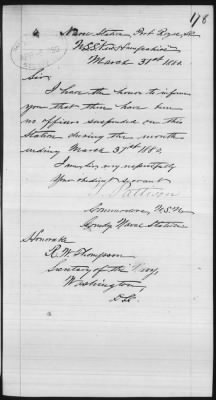 118
Naval Station Port Royal, SC
U.S.S. New Hampshire
March 31st 1880.
Sir:
I have the honor to inform
you that there have been
no officers suspended on this
Station during the month
ending March 31st 1880.
I am, Sir, very respectfully
Your obedient Servant
Pattison
Commodore, U.S.N.
Comdg Naval Station
Honorable
R. W. Thompson
Secretary of the Navy,
Washington,
D.C.